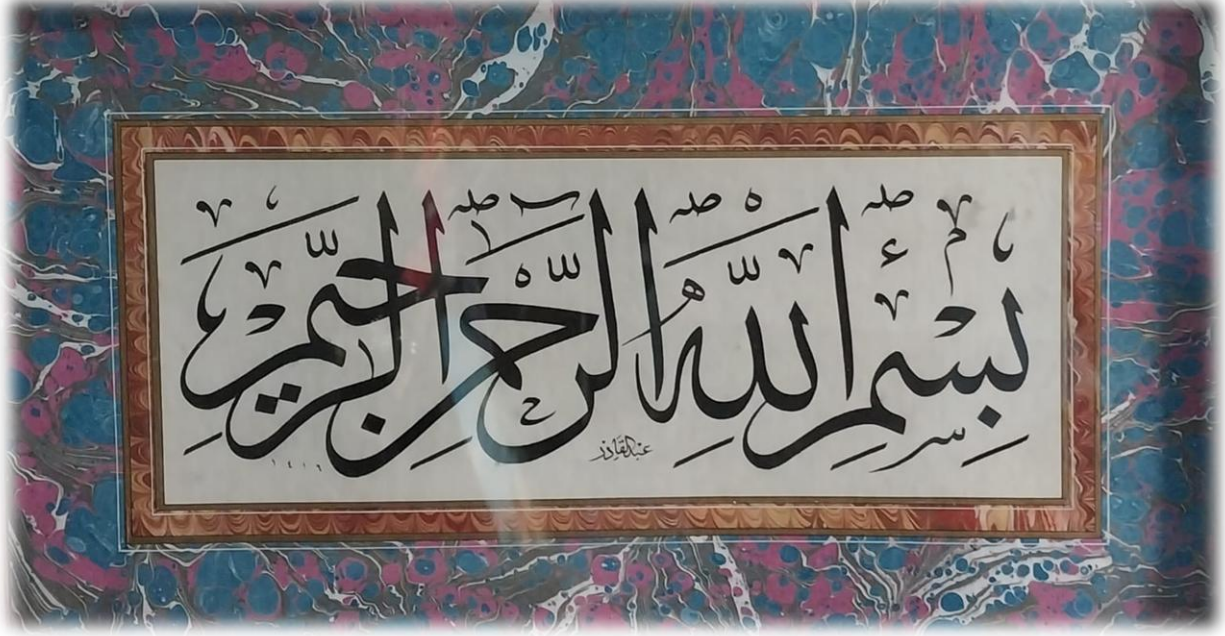 بِسْمِ اللّٰهِ الرَّحْمٰنِ الرَّحِيمِ
عبدالقادر
١٤١٦